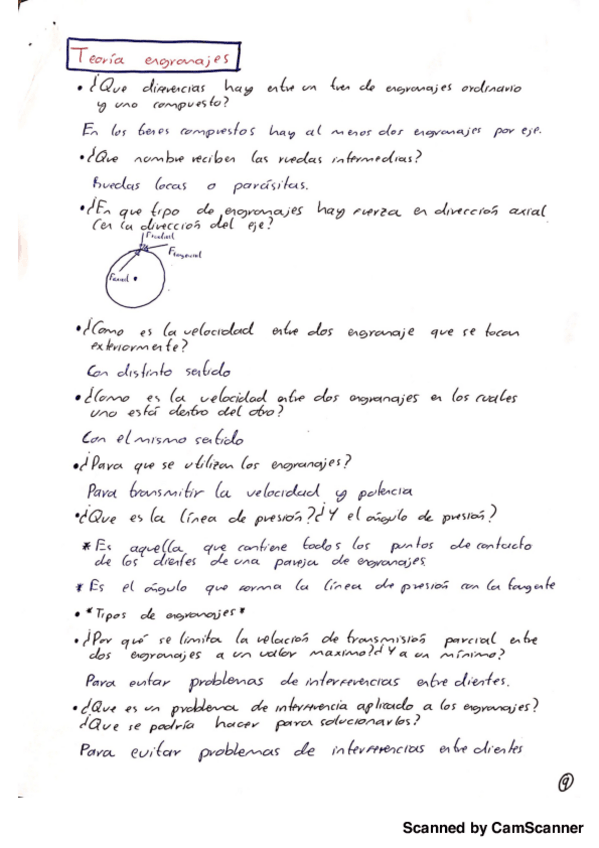 Teoría engranajes
• ¿Que diferencias hay entre un tren de engranajes ordinario
y uno compuesto?
En los trenes compuestos hay al menos dos engranajes por eje.
• ¿Que nombre reciben las ruedas intermedias?
Ruedas locas o parásitas.
• ¿En que tipo de engranajes hay fuerza en dirección axial
(en la dirección del eje?
Fradial
Ftangencial
Faxial
• ¿Como es la velocidad entre dos engranaje que se tocan
exteriormente?
Con distinto sentido
• ¿Como es la velocidad entre dos engranajes en los cuales
uno está dentro del otro?
Con el mismo sentido
• ¿Para que se utilizan los engranajes?
Para transmitir la velocidad y potencia
• ¿Que es la línea de presión? ¿Y el ángulo de presión?
* Es aquella que contiene todos los puntos de contacto
de los dientes de una pareja de engranajes
* Es el ángulo que forma la línea de presión con la tangente
• "Tipos de engranajes"
• ¿Por qué se limita la relación de transmisión parcial entre
dos engranajes a un valor maximo? ¿Y a un mínimo?
Para evitar problemas de interferencias entre dientes.
• ¿Que es un problema de interferencia aplicado a los engranajes?
¿Que se podría hacer para solucionarlos?
Para evitar problemas de interferencias entre dientes
9
Scanned by CamScanner